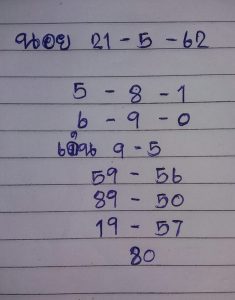 ฆอย 21 - 5 - 62
5 - 8 - 1
6 - 9 - 0
เน้น 9 - 5
59 - 56
89 - 50
19 - 57
80